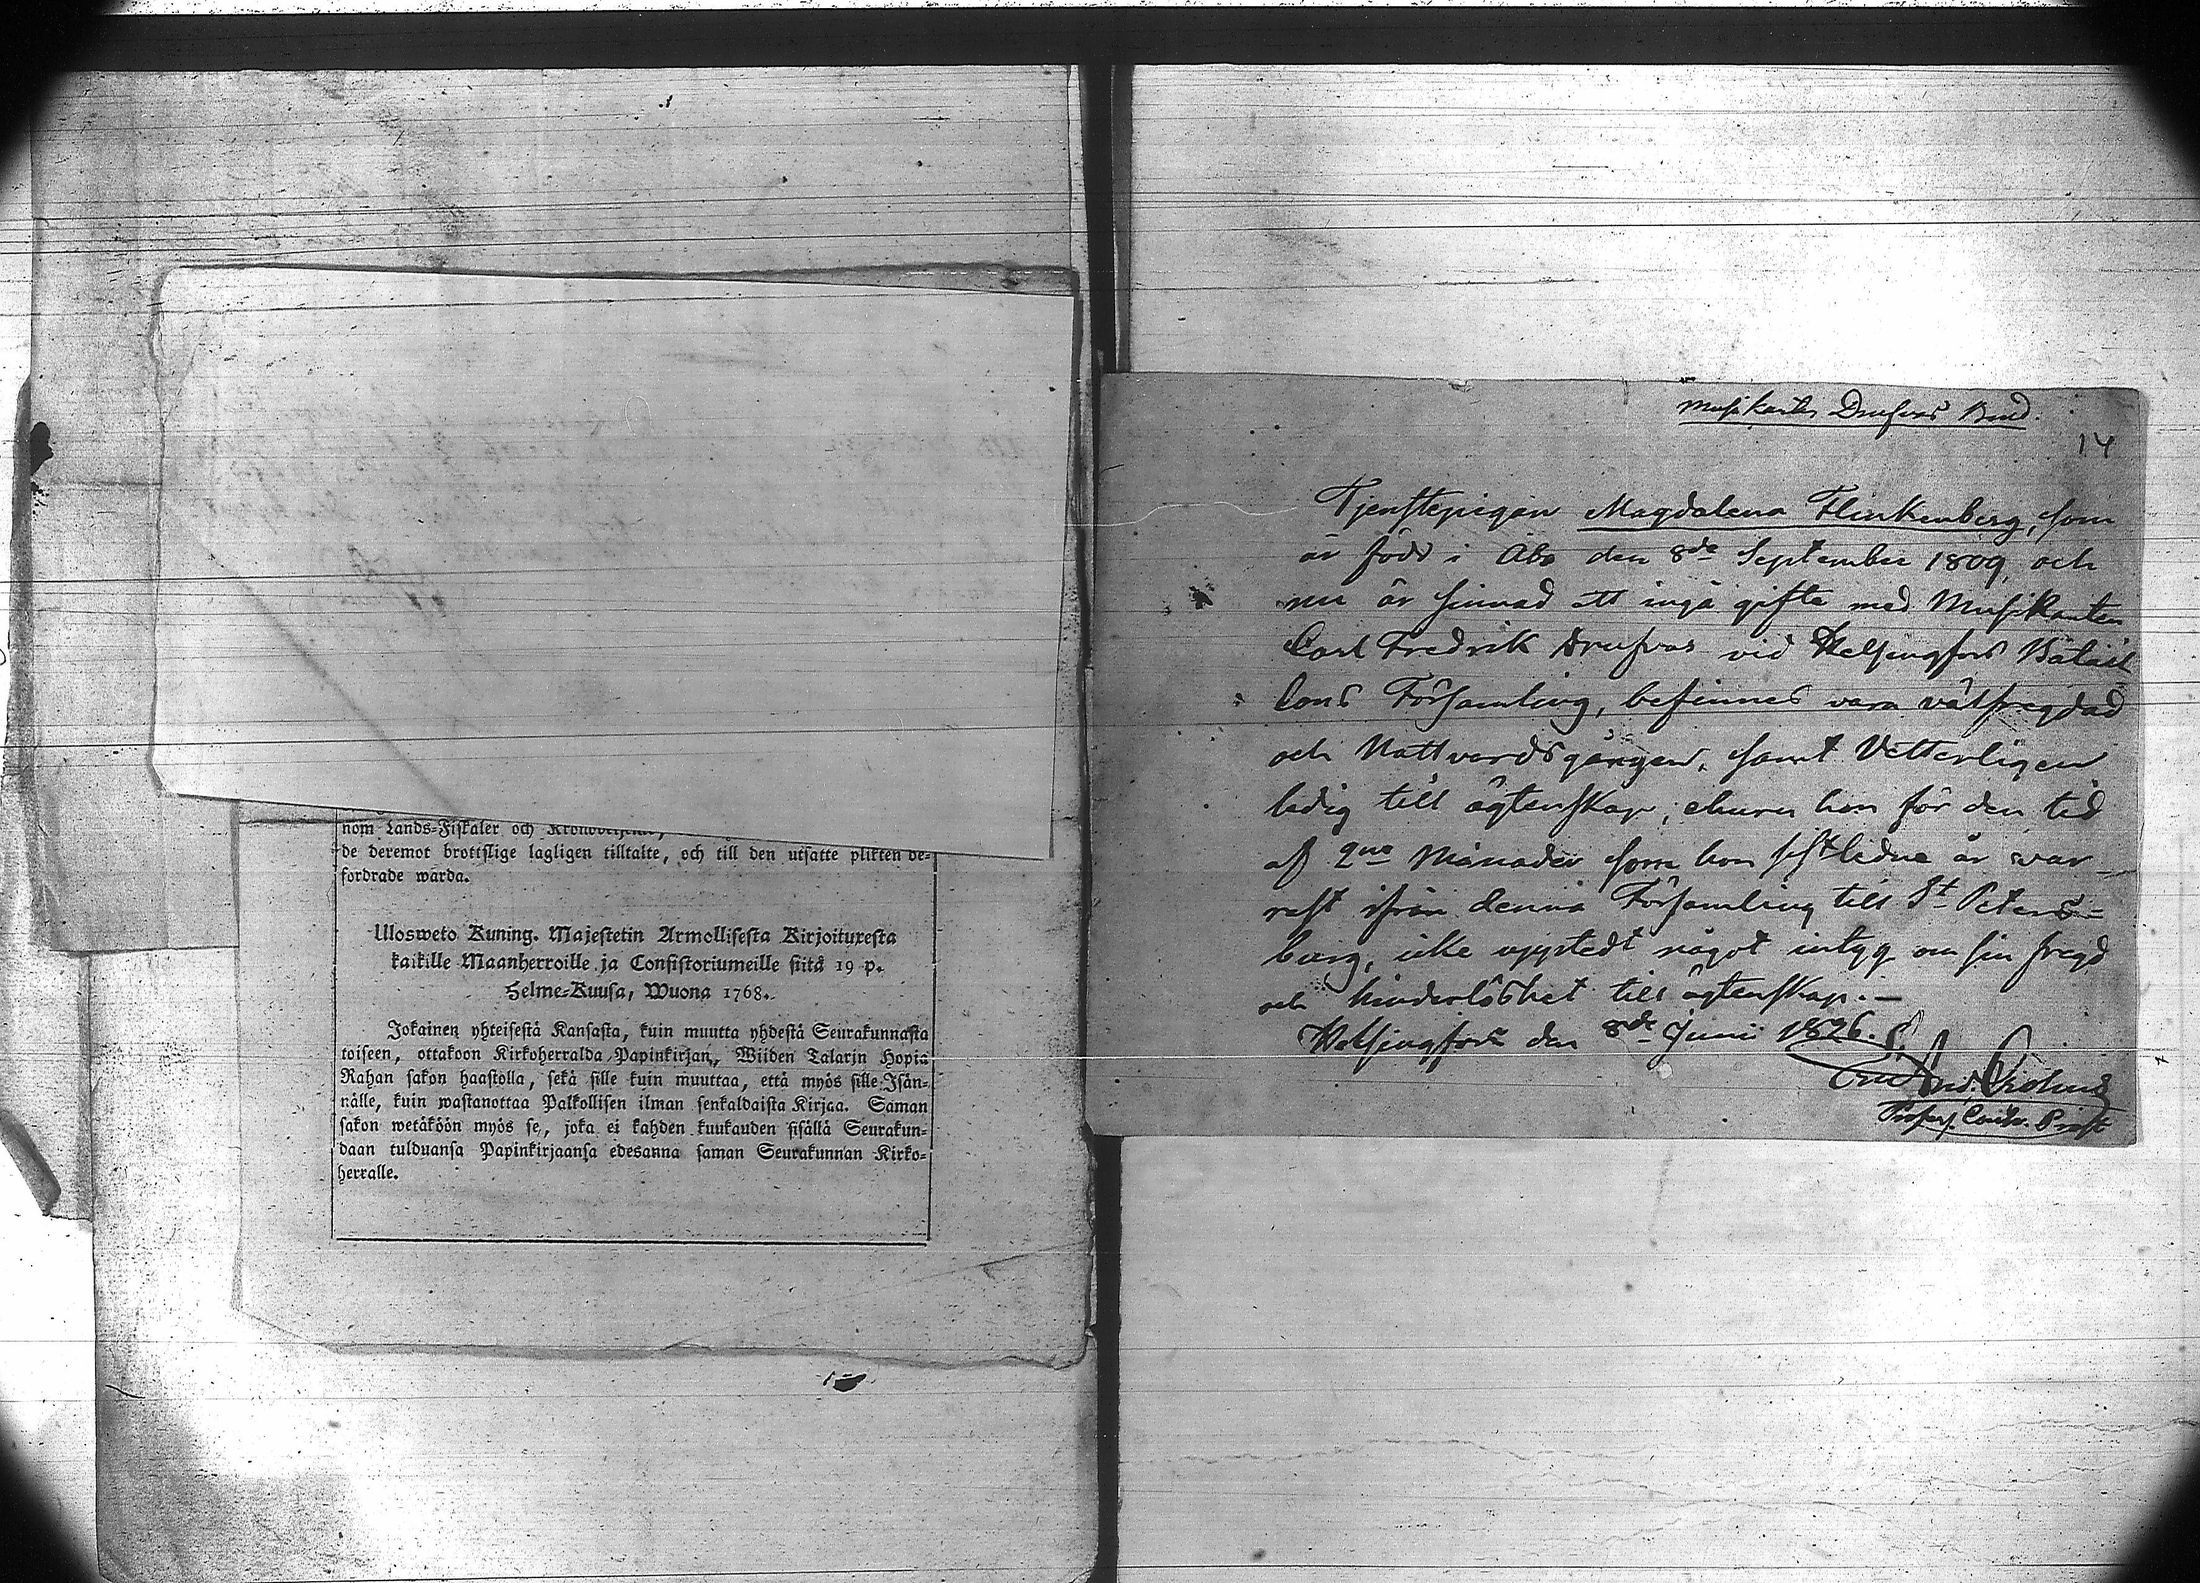 nom Lands-Fiskaler och
de deremot brottslige lagligen tilltalte, och till den utsatte plikten be-
fordrade wärda.
Ulosweto Kuning. Majestetin Armollisesta Kirjoituxesta
kaikille Maanherroille ja Consistoriumeille siitä 19 p.
Helme-Kuusa, Wuona 1768.
Jokainen yhteisestä Kansasta, kuin muutta yhdestä Seurakunnasta
toiseen, ottakoon Kirkoherralda Papinkirjan, Wiiden Talarin Hopia
Rahan sakon haastolla, sekä sille kuin muuttaa, että myös sille Isän-
nälle, kuin wastanottaa Palkollisen ilman senkaldaista Kirjaa. Saman
sakon wetäköön myös se, joka ei kahden kuukauden sisällä Seurakun-
daan tulduansa Papinkirjaansa edesanna saman Seurakunnan Kirko-
herralle.
Musikanten Drufvas Brud.
14
Tjenstepigan Magdalena Flinkenberg, som
är född i Åbo den 8de September 1809, och
nu är sinnad att ingå gifte med Musikanten
Carl Fredrik Drufvas vid Helsingfors Batail-
lons Församling, befinnes vara välfregdad
och Nattvardsgången, samt Vetterligen
ledig till ägtenskap, ehuru hon för den tid
af 2ne Månader som hon sistledne år var
rest ifrån denna Församling till St Peters=
burg, icke uppstedt något intyg om sin fregd
och hinderlöshet till ägtenskap.—
Helsingfors den 8de Junii 1826.